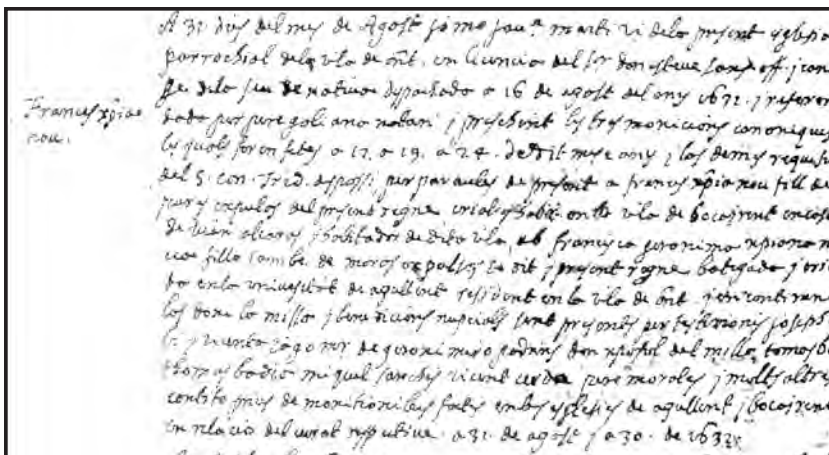 A 31 dies del mes de Agost jo mo Jau.e marti vi dela present yglesia
parrochial dela vila de ont. en llicencia del Sr don esteve sans off. j can
ge. dela seu de Valencia despachada a 16 de agost del any 1632. j referen
dada per pere goliano notari j precehint les tres monicions canoniques
les quals foren fetes a 17. a 19. a 24. de dit mes e any j los demes requisits
del S. con. Trid. desposi per paraules de present a frances xpia nou fill de
pares expulsos del present regne criat habit. en la vila de bocayrent en casa
de olivares j habitador de dita vila, ab francisca geronima xpiana n
ua filla tambe de moros expolsos de dit j present regne batejada j cri
da en la universitat de agullent resident en la vila de ont. j en continen
los doni la missa j benediccions nupcials sent presents per testimonis joseph
j vicent de geroni miro don xpistofol del milla tomas
thomas miquel sanchis vicent cerda pere morales j molts altres
contito prius de monitionibus fates en les esglesies de agullent j bocayrent
en relacio del curat respective. a 31. de agost j a 30. de 1632
Frances xpia
nou.